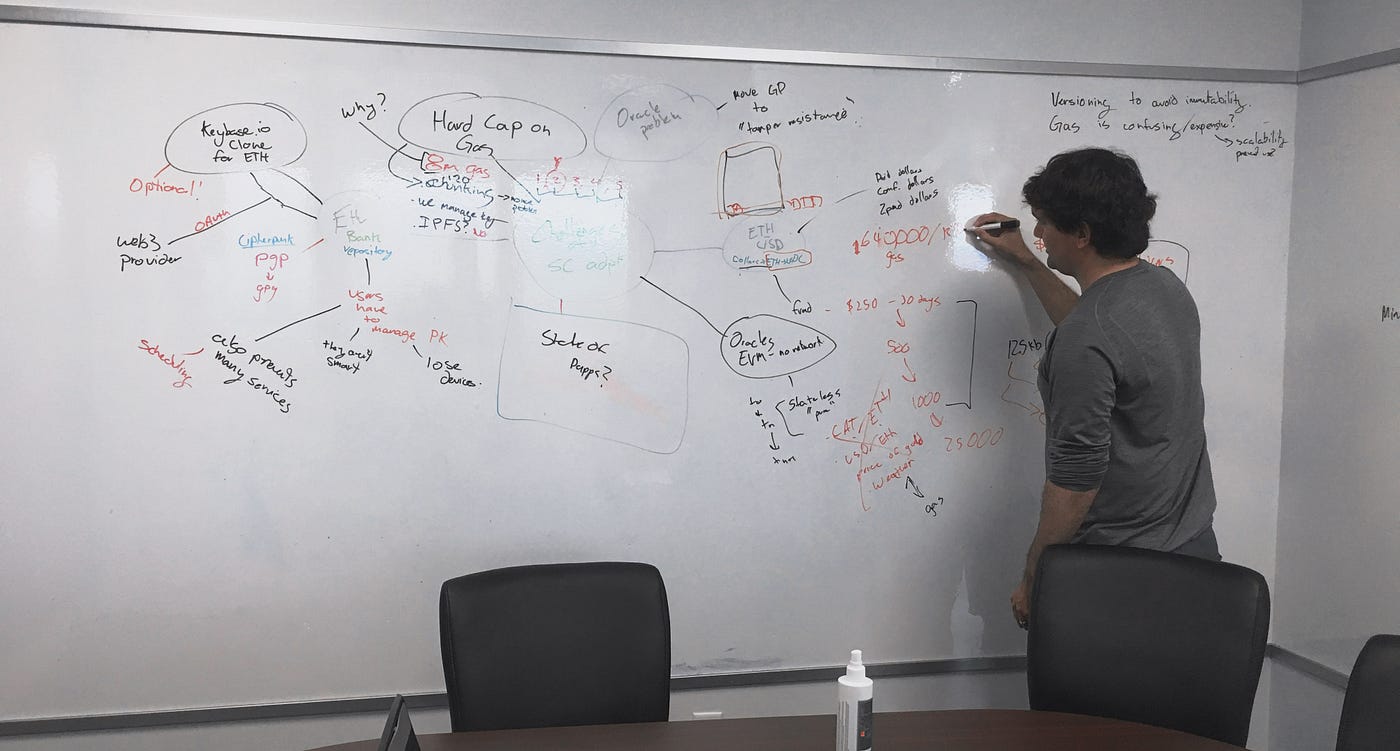 Keybase.io
Clone
for ETH
Optional!
OAuth
web3
provider
Cipherpunk
pgp
gpg
ETH
Bank
repository
users
have
to
manage PK
they aren't
smart
lose
devices.
Scheduling
also prevents
many services
why?
Hard Cap on
Gas
8m gas
120
chunking
we manage by
IPFS? no
1 2 3 4 5
Challenges
SC adopt
State of
Dapps?
Oracle
problem
move GP
to
"tamper resistance"
ETH
USD
Oracles
EVM - no network
stateless
"pure"
Dai dollars
Conf. dollars
Zpand dollars
$640000/
gas
fund - $250 - 30 days
500
1000
25000
CAT / ETH
USD/Eth
price of gold
weather
gas
Versioning to avoid immutability.
Gas is confusing/expensive?
scalability
125kb